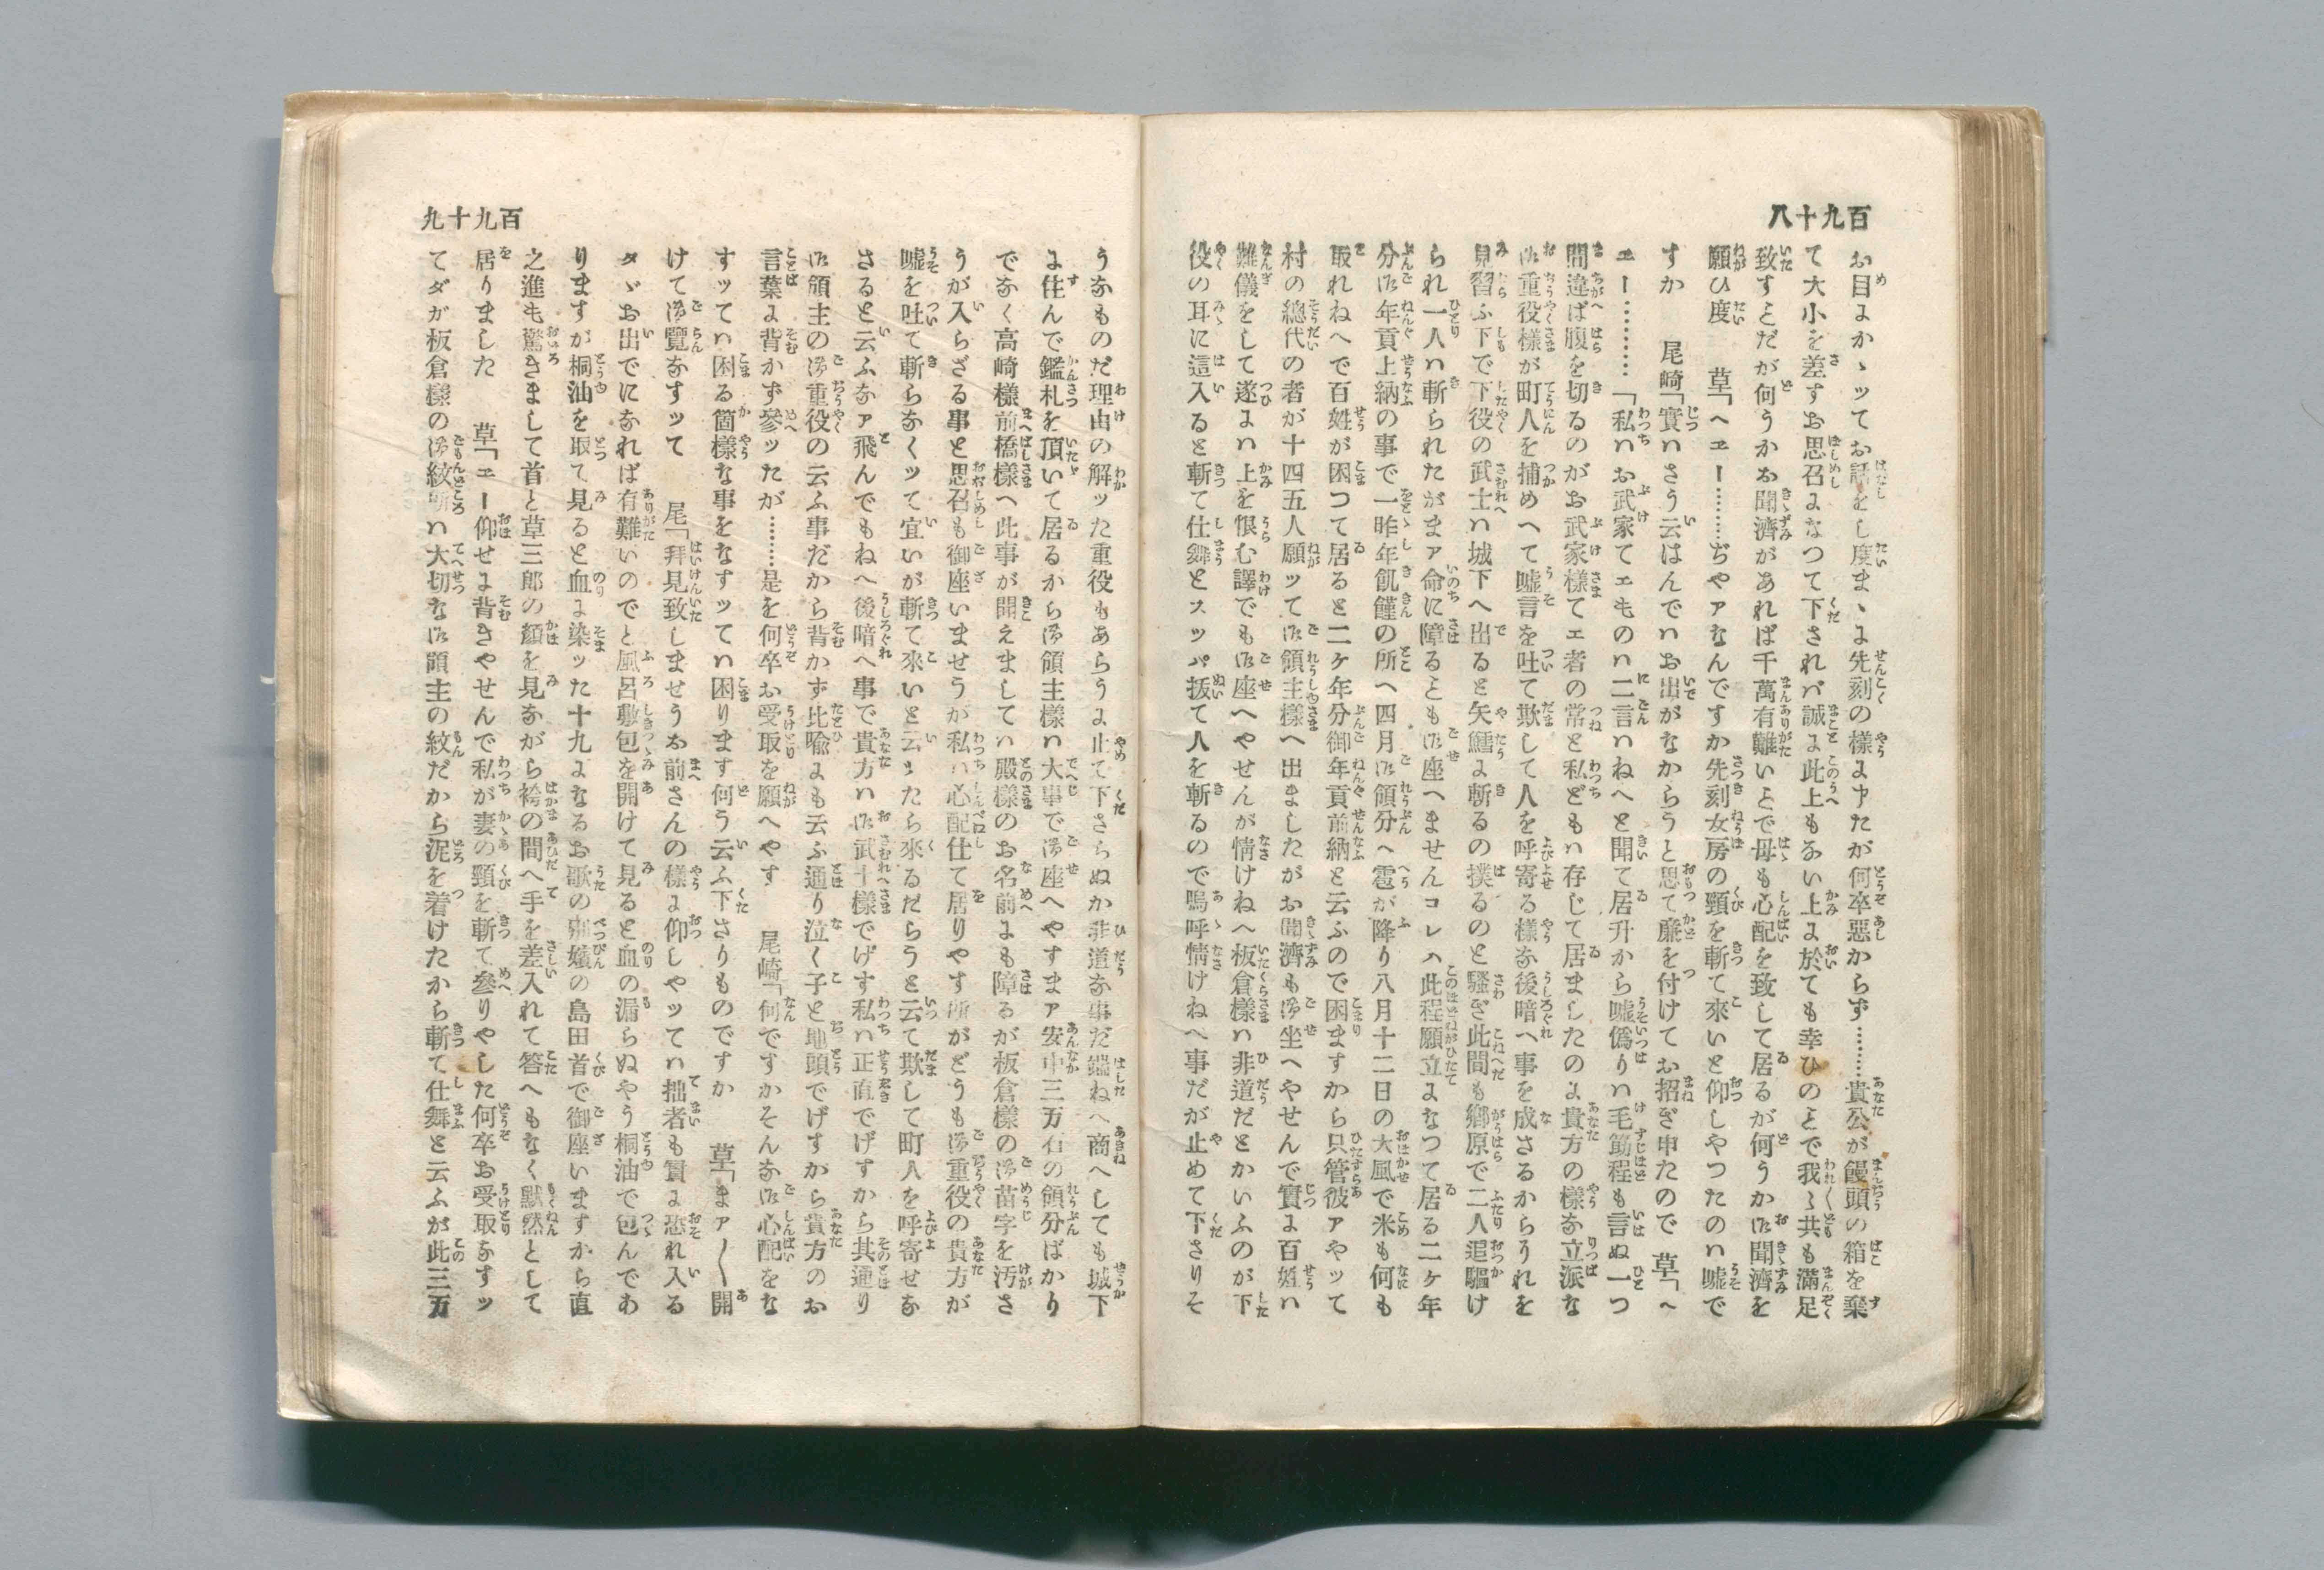 百九十八
お目にかゝッてお話をし度まゝに先刻の樣に申たが何卒惡からず………貴公が饅頭の箱を棄
て大小を差すお思召になつて下されバ誠に此上もない上に於ても幸ひのことで我々共も滿足
致すことだが何うかお聞濟があれば千萬有難いことで母も心配を致して居るが何うか御聞濟を
願ひ度　草「ヘエー………ぢやアなんですか先刻女房の頸を斬て來いと仰しやつたのハ嘘で
すか　尾崎「實ハさう云はんでハお出がなからうと思て廉を付けてお招ぎ申たので　草「ヘ
エー…………「私ハお武家てエものハ二言ハねへと聞て居升から嘘僞りハ毛筋程も言ぬ一つ
間違ば腹を切るのがお武家樣てエ者の常と私どもハ存じて居ましたのに貴方の樣な立派な
御重役樣が町人を捕めへて嘘言を吐て欺して人を呼寄る樣な後暗へ事を成さるからうれを
見習ふ下で下役の武士ハ城下へ出ると矢鱈に斬るの撲るのと騷ぎ此間も鄕原で二人追驅け
られ一人ハ斬られたがまア命に障るとも御座へませんコレハ此程願立になつて居る二ヶ年
分御年貢上納の事で一昨年飢饉の所へ四月御領分へ雹が降り八月十二日の大風で米も何も
取れねへで百姓が困つて居ると二ヶ年分御年貢前納と云ふので困ますから只管彼アやッて
村の總代の者が十四五人願ッて御領主樣へ出ましたがお聞濟も御坐へやせんで實に百姓ハ
難儀をして遂にハ上を恨む譯でも御座へやせんが情けねへ板倉樣ハ非道だとかいふのが下
役の耳に這入ると斬て仕舞とスッパ拔て人を斬るので嗚呼情けねへ事だが止めて下さりそ
百九十九
うなものだ理由の解ッた重役もあらうに止て下さらぬか非道な事だ端ねへ商へしても城下
に住んで鑑札を頂いて居るから御領主樣ハ大事で御座へやすまア安中三万石の領分ばかり
でなく高崎樣前橋樣へ此事が聞えましてハ殿樣のお名前にも障るが板倉樣の御苗字を汚さ
うが入らざる事と思召も御座いませうが私ハ心配仕て居りやす所がどうも御重役の貴方が
嘘を吐て斬らなくッて宜いが斬て來いと云ッたら來るだらうと云て欺して町人を呼寄せな
さると云ふなア飛んでもねへ後暗へ事で貴方ハ御武士樣でげす私ハ正直でげすから其通り
御領主の御重役の云ふ事だから背かず比喩にも云ふ通り泣く子と地頭でげすから貴方のお
言葉に背かず參ッたが………是を何卒お受取を願へやす　尾崎「何ですかそんな御心配をな
すッてハ困る箇樣な事をなすッてハ困ります何う云ふ下さりものですか　草「まア〳〵開
けて御覽なすッて　尾「拜見致しませうお前さんの樣に仰しやッてハ拙者も實に恐れ入る
タゞお出でになれば有難いのでと風呂敷包を開けて見ると血の漏らぬやう桐油で包んであ
りますが桐油を取て見ると血に染ッた十九になるお歌の別嬪の島田首で御座いますから直
之進も驚きまして首と草三郎の顏を見ながら袴の間へ手を差入れて答へもなく默然として
居りました　草「エー仰せに背きやせんで私が妻の頸を斬て參りやした何卒お受取なすッ
てダガ板倉樣の御紋所ハ大切な御領主の紋だから泥を着けたから斬て仕舞と云ふが此三万